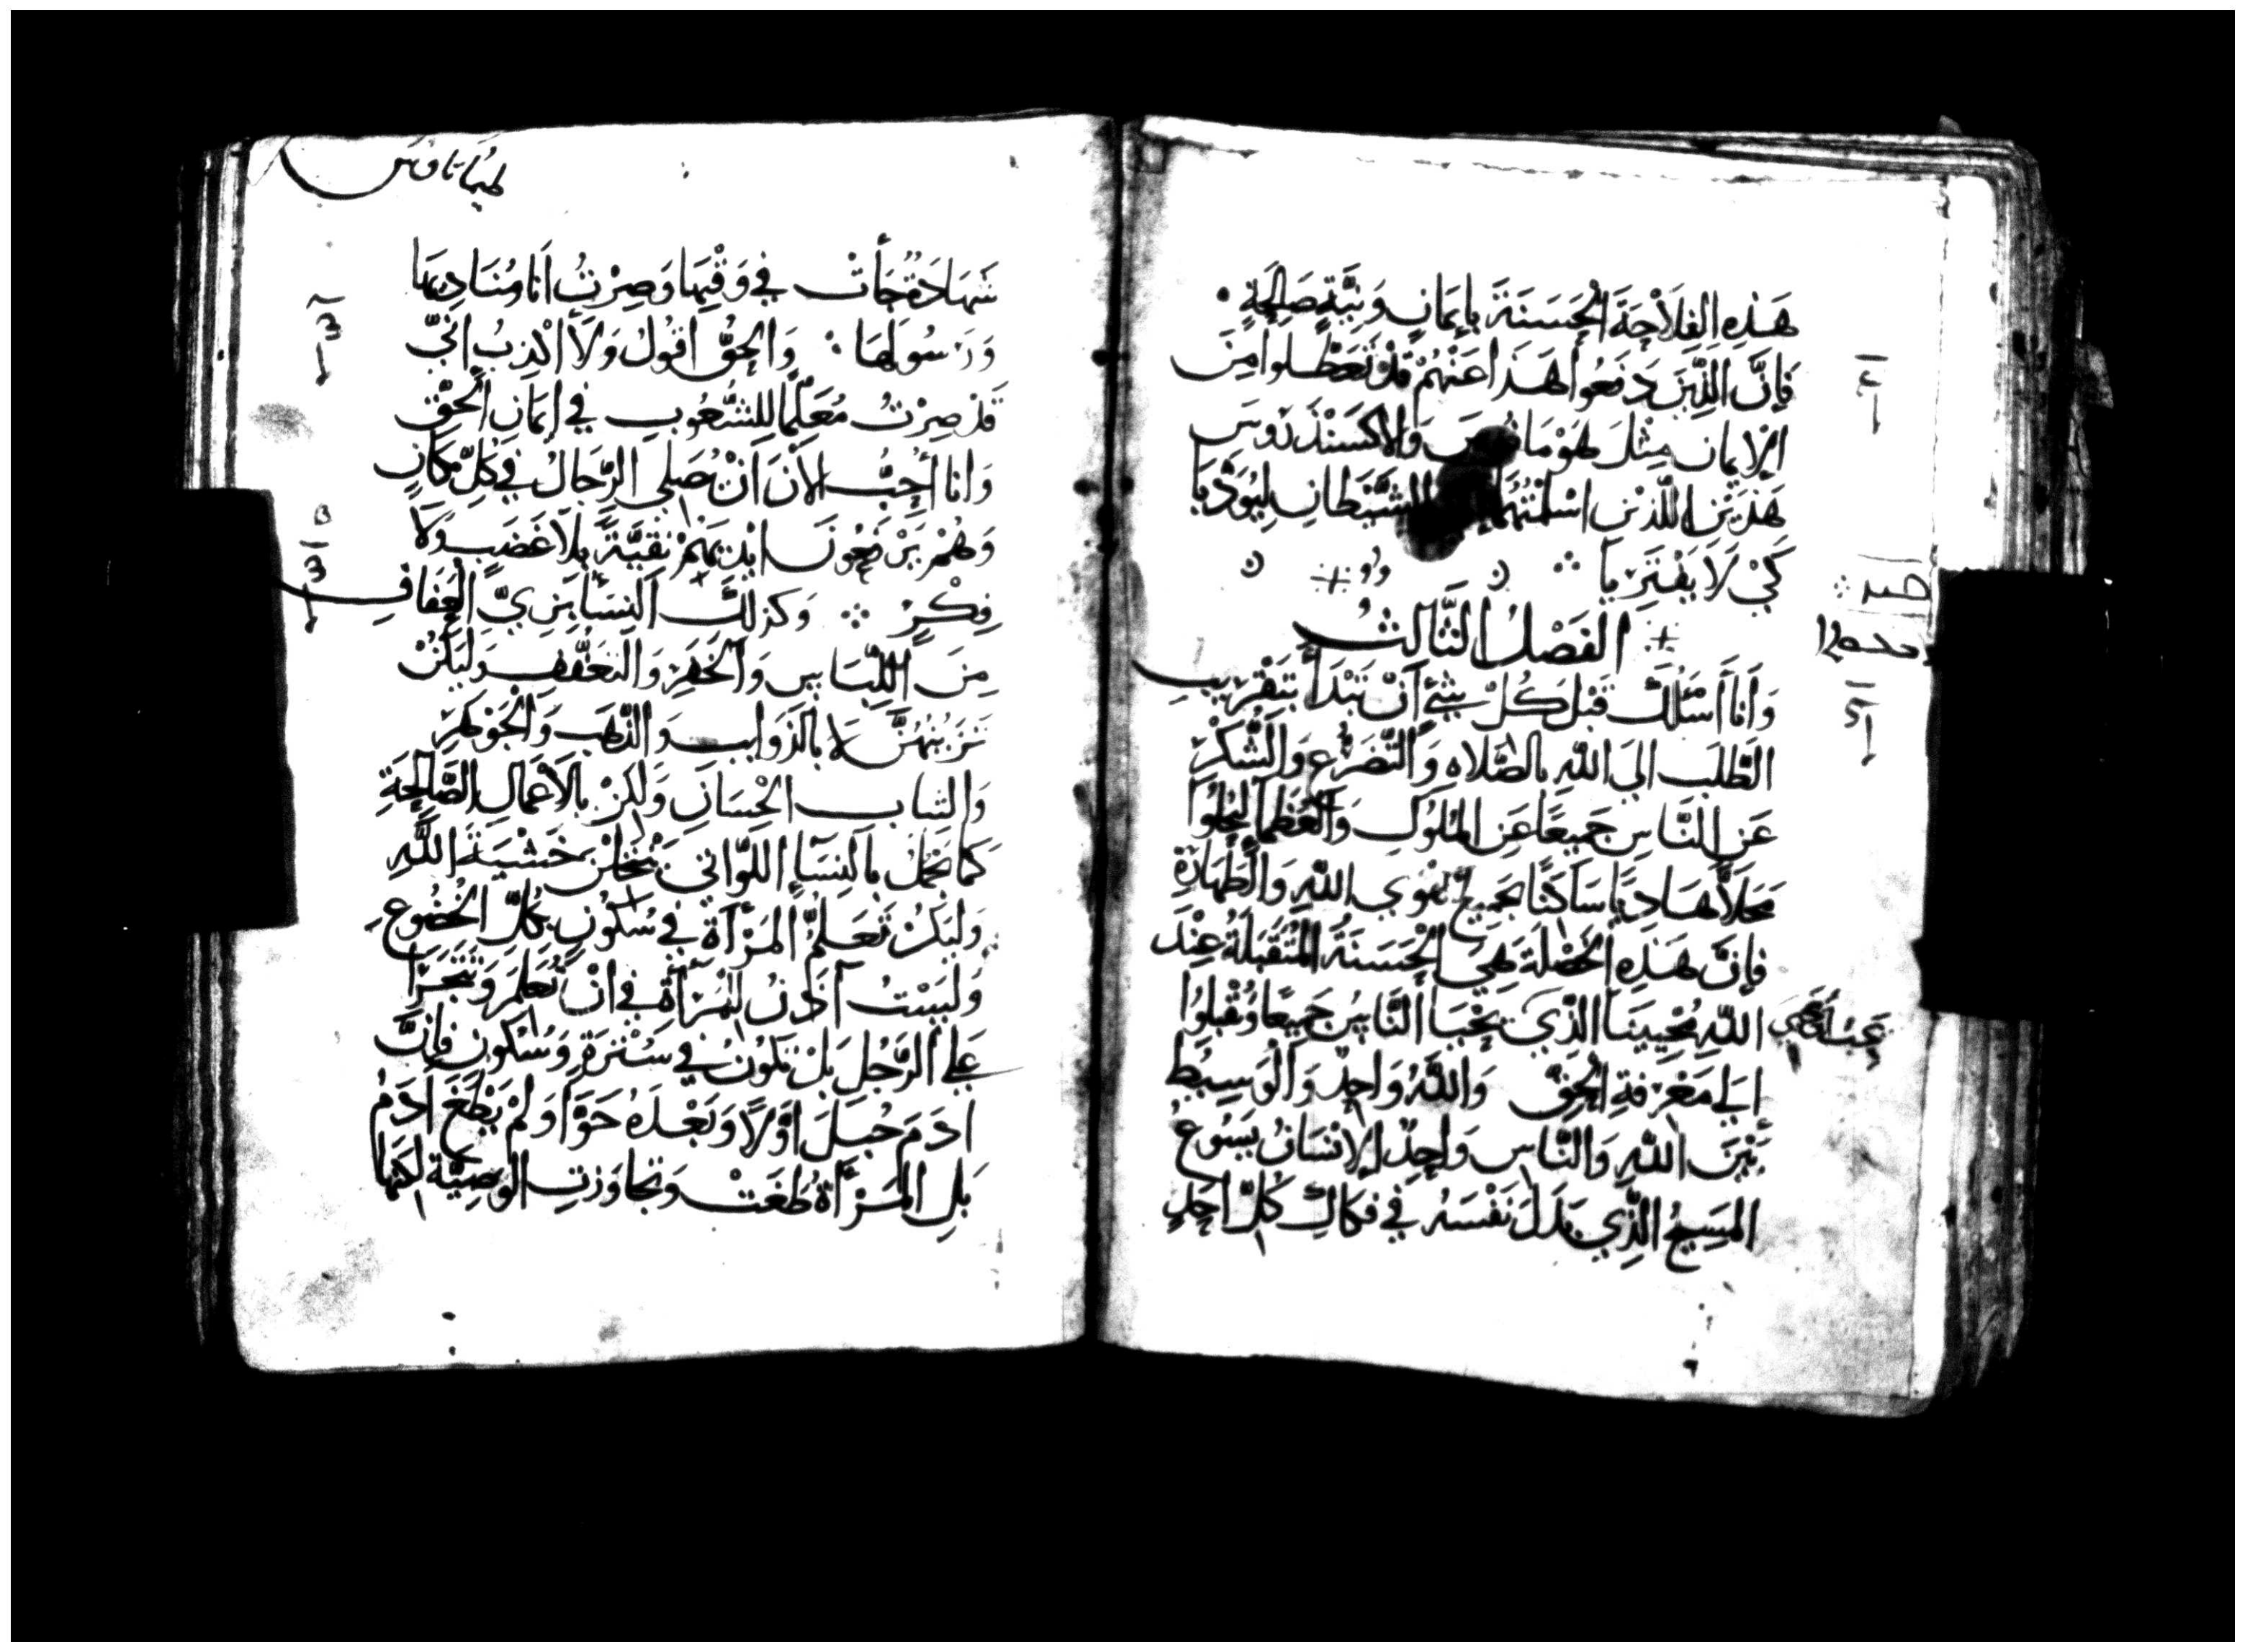 هَذِهِ الفِلَاحَةَ الحَسَنَةَ بِإِيمَانٍ وَنِيَّةٍ صَالِحَةٍ
فَإِنَّ الَّذِينَ دَفَعُوا هَذَا عَنْهُمْ قَدْ تَعَطَّلُوا مِنَ
الإِيمَانِ مِثْلَ هُوْمَا وَالاكسَنْدَرُوسَ
هَذَيْنِ اللَّذَيْنِ اسْلَمْتُهُمَا لِلشَّيْطَانِ لِيُوَدَّبَا
كَيْ لَا يَفْتَرِيَا
الفَصْلُ الثَّالِثُ
وَأَنَا أَسْئَلُكَ قَبْلَ كُلِّ شَيْءٍ أَنْ تَبْدَأَ بِتَقْرِيبِ
الطَّلَبِ الَى اللهِ بِالصَّلَاه وَالتَّضَرُّعِ وَالشُّكْرِ
عَنِ النَّاسِ جَمِيعًا عَنِ المُلُوكِ وَالعُظَمَا لِيَحُلُّوا
مَحَلَّا هَادِيًا سَاكِنًا بِجَمِيعِ تَقْوَى اللهِ وَالطَّهَارَةِ
فَإِنَّ هَذِهِ الخَصْلَةَ هِيَ الحَسَنَةُ المُتَقَبَّلَةُ عِنْدَ
اللهِ مُحْيِينَا الَّذِي يُحِبُّ أَنْ يَحْيَا النَّاسُ جَمِيعًا وَيُقْبِلُوا
الَى مَعْرِفَةِ الحَقِّ وَاللهُ وَاحِدٌ وَالوَسِيطُ
بَيْنَ اللهِ وَالنَّاسِ وَاحِدٌ الإِنْسَانُ يَسُوعُ
المَسِيحُ الَّذِي بَذَلَ نَفْسَهُ فِي فكَاكِ كُلِّ احَدٍ
طيماتاوس
شَهَادَةٌ جَأَتْ فِي وَقْتِهَا وَصِرْتُ انَا مُنَادِيهَا
وَرَسُولَهَا وَالحَقَّ اقُولُ وَلَا اكْذِبُ انِّي
قَدْ صِرْتُ مُعَلِّمًا لِلشُّعُوبِ فِي إِيمَانِ الحَقِّ
وَانَا أُحِبُّ الأنَ أَنْ يُصَلِّي الرِّجَالُ فِي كُلِّ مَكَانٍ
وَهُمْ يَرْفَعُونَ ايْدِيَهُمْ نَقِيَّةً بِلَا غَضَبٍ وَلَا
فِكْرٍ وَكَذلِكَ النِّسَأ بِزِيِّ العَفَافِ
مِنَ اللِّبَاسِ وَالخَفَرِ وَالتَّعَفُّفِ وَليَكُنْ
تَزَيُّنُهُنَّ لَا بِالذَّوَايبِ وَالذَّهَبِ وَالجَوْهَرِ
وَالثياب الحِسَانِ وَلَكِنْ بِالأَعْمَالِ الصَّالِحَةِ
كَمَا يَجْمُلُ بِالنِّسَاءِ اللَّوَاتِي يَنْتَحِلْنَ خَشْيَةَ اللهِ
وَلْيَكُنْ تَعَلُّمُ المَرْأَةِ فِي سُكُونٍ بِكُلِّ الخُضُوعِ
وَلَيْسْتُ آذَنُ لِلمَرْأَةِ فِي انْ تُعَلِّمَ وَتَتَجَرَّا
عَلَى الرَّجُلِ بَلْ تَكُونُ فِي سُتْرَةٍ وَسُكُونٍ فَإِنَّ
ادَمَ جُبِلَ اوَّلًا وَبَعْدَهُ حَوَّا وَلَمْ يَطْغَ ادَمُ
بَلِ المَرْأَةُ طَغَتْ وَتَجَاوَزَتِ الوَصِيَّةَ لَكِنَّهَا